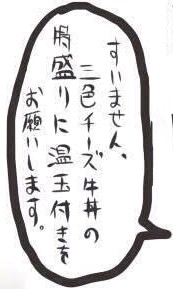 すいません、
三色チーズ牛丼の
特盛りに温玉付きを
お願いします。